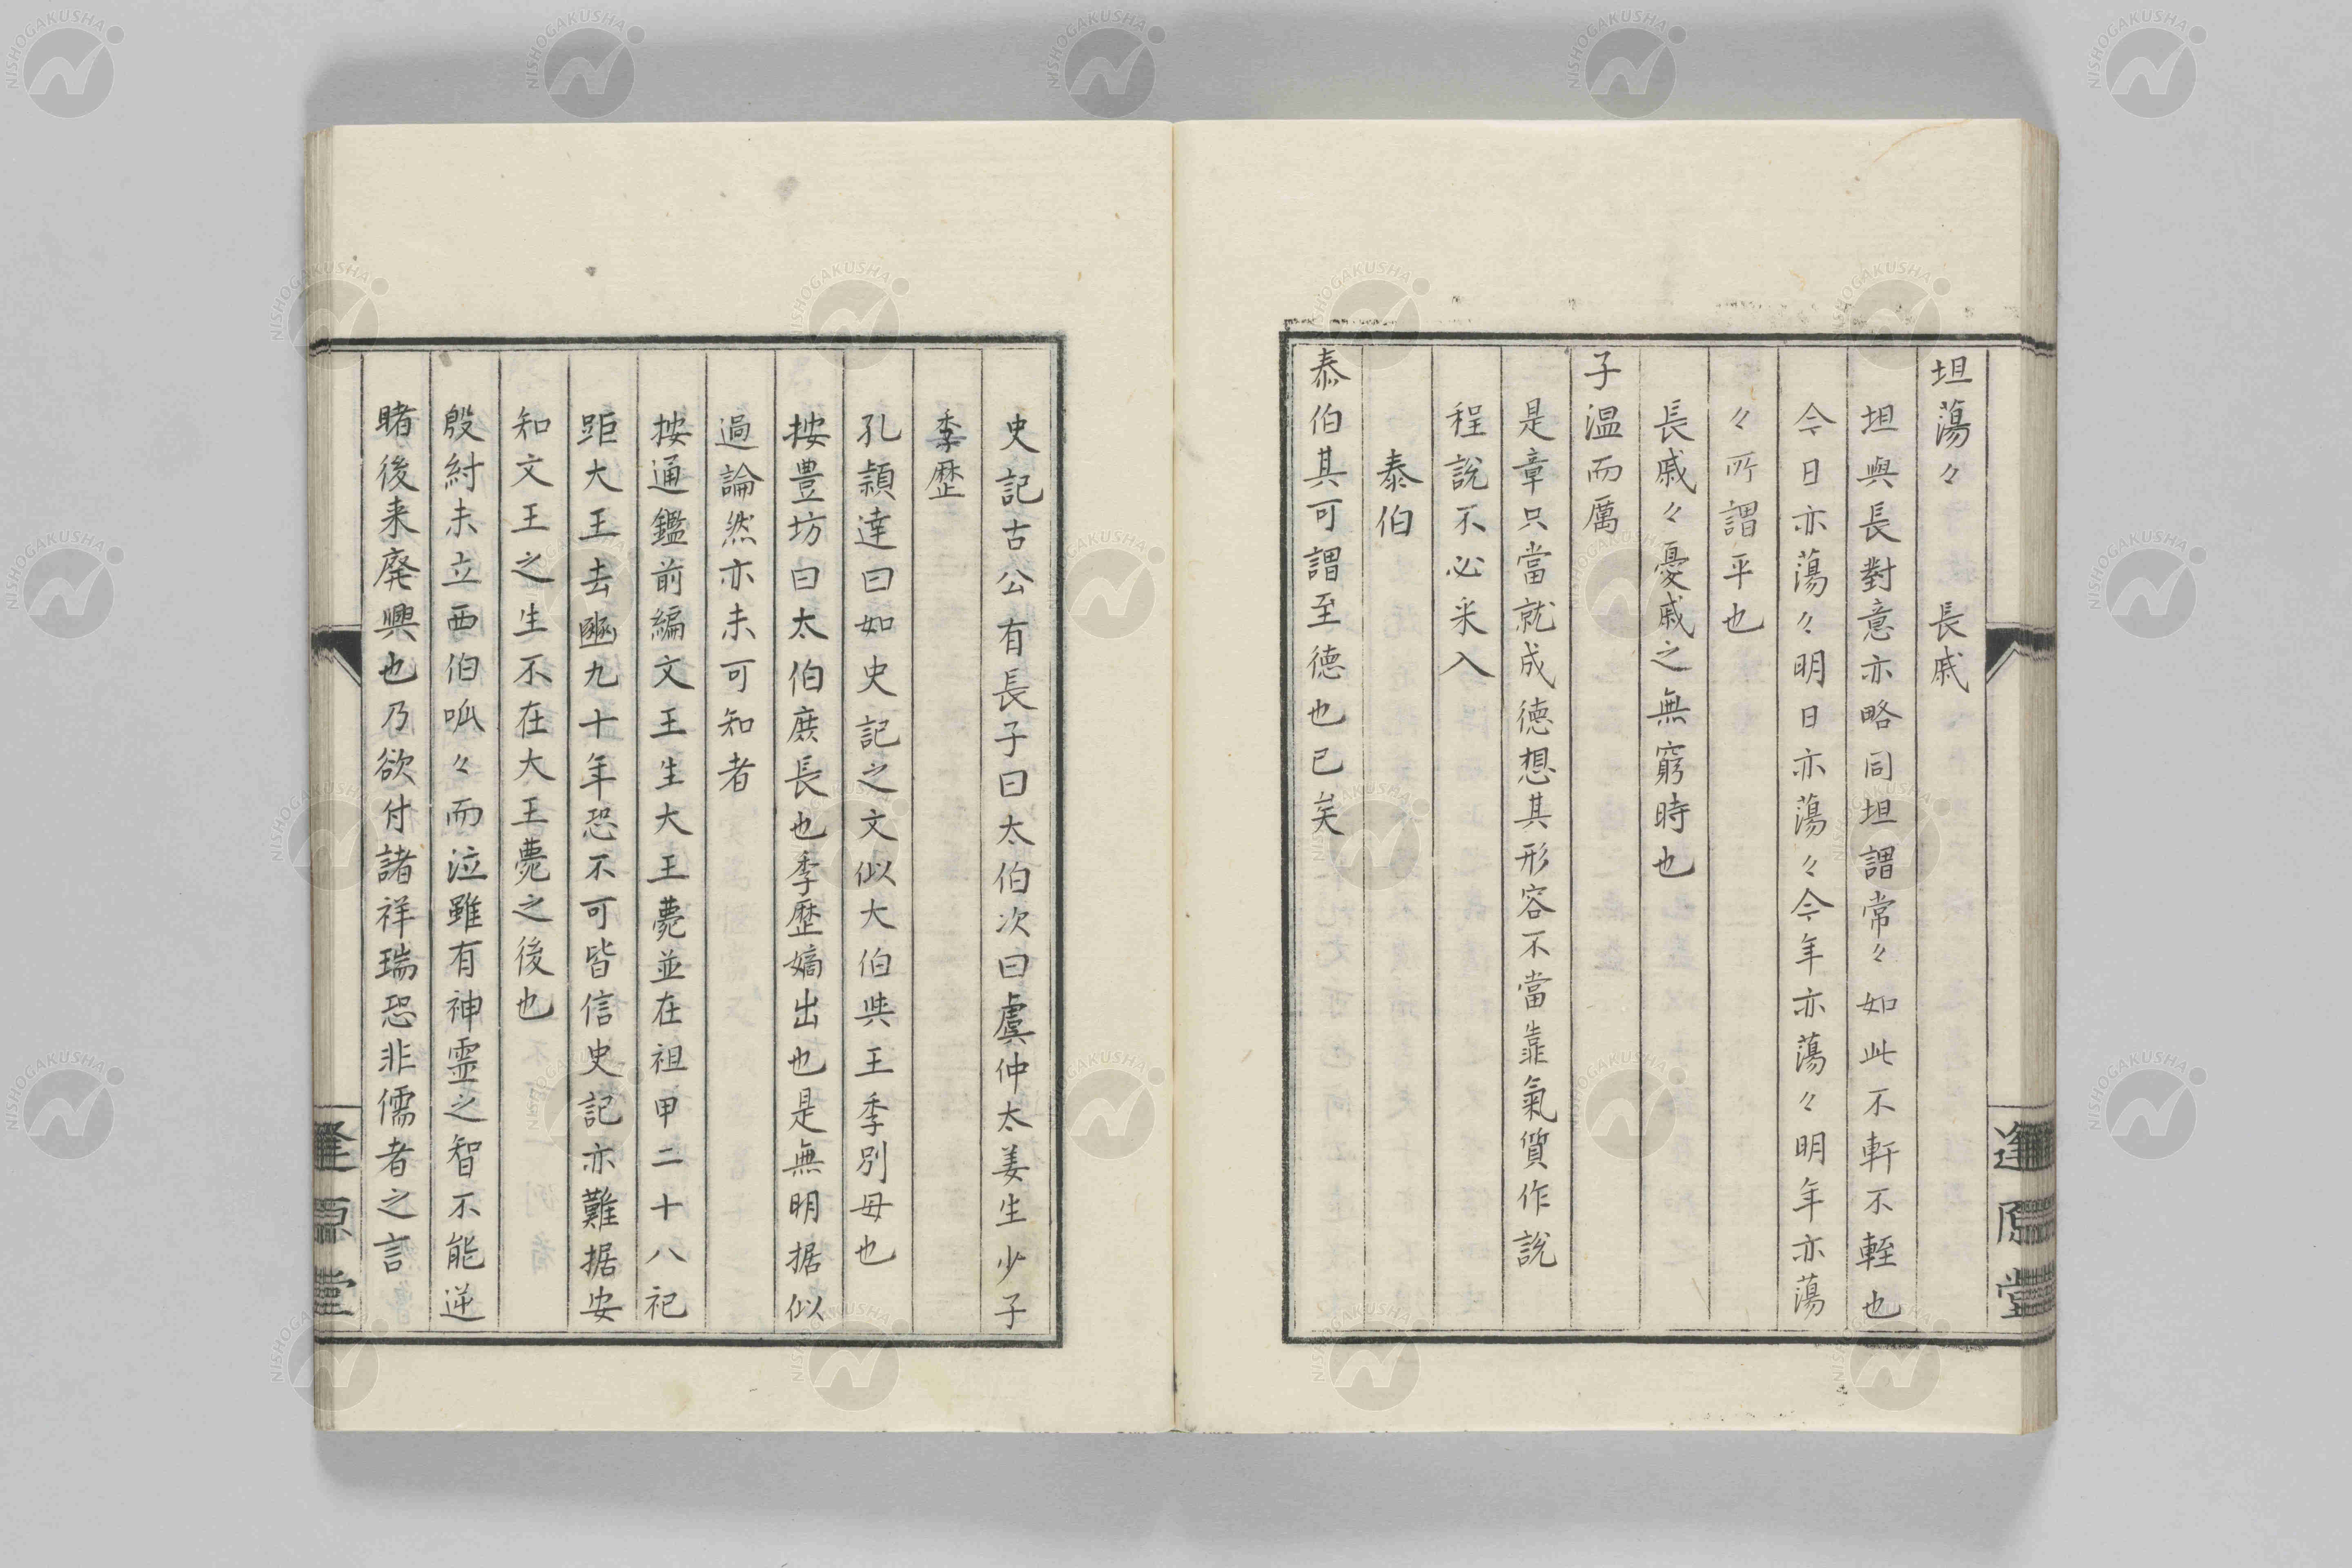 坦蕩々　長戚
坦與長對意亦略同坦謂常々如此不軒不輊也
今日亦蕩々明日亦蕩々今年亦蕩々明年亦蕩
々所謂平也
長戚々憂戚之無窮時也
子温而厲
是章只當就成德想其形容不當靠氣質作說
程說不必采入
泰伯
泰伯其可謂至德也已矣
逢原堂
史記古公有長子曰太伯次曰虞仲太姜生少子
季歷
孔穎達曰如史記之文似大伯與王季別母也
按豊坊曰太伯庶長也季歷嫡出也是無明据似
過論然亦未可知者
按通鑑前編文王生大王薨並在祖甲二十八祀
距大王去豳九十年恐不可皆信史記亦難据安
知文王之生不在大王薨之後也
殷紂未立西伯呱々而泣雖有神霊之智不能逆
睹後来廃興也乃欲付諸祥瑞恐非儒者之言
逢原堂
NISHOGAKUSHA